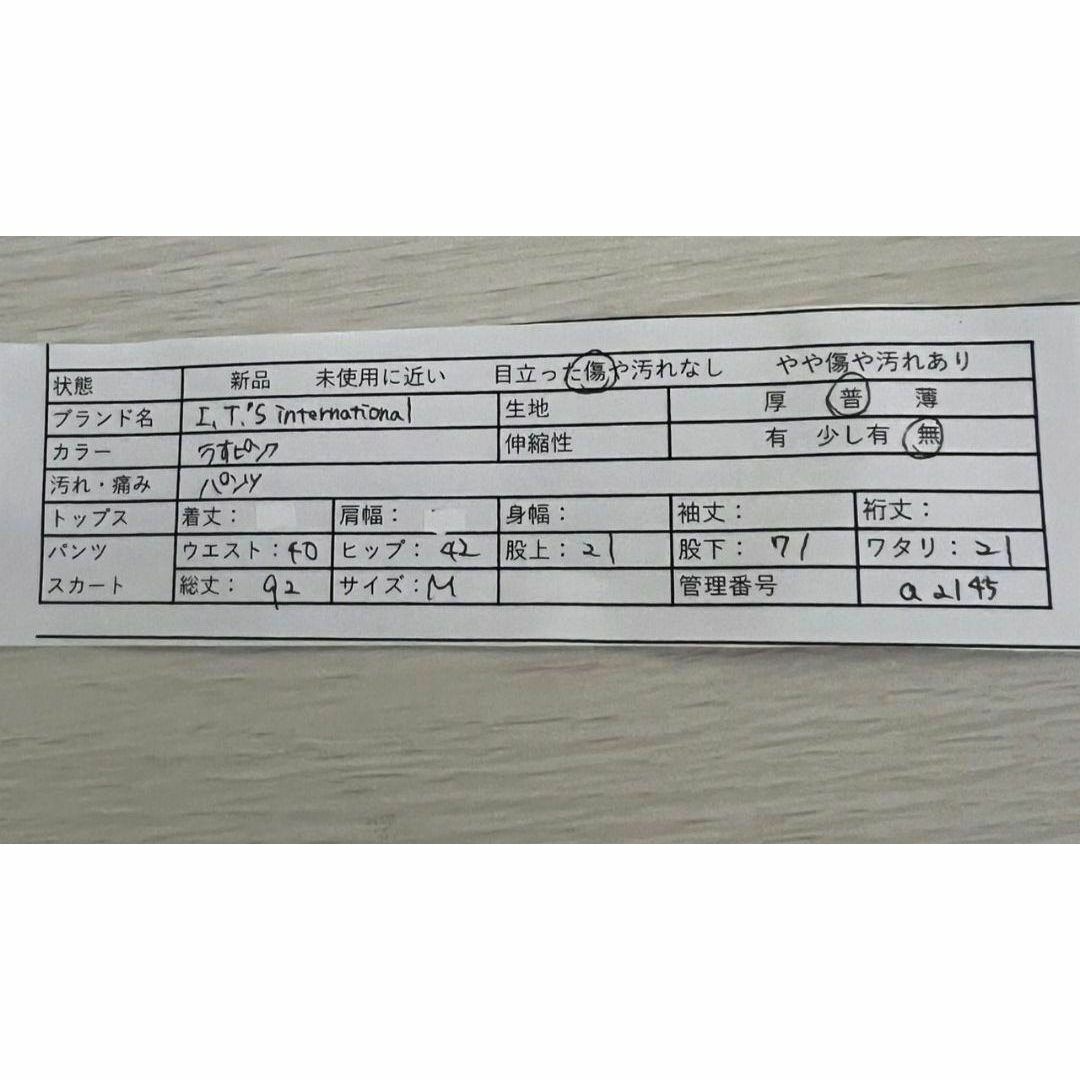 状態 新品 未使用に近い 目立った傷や汚れなし やや傷や汚れあり
ブランド名 I.T.'S international 生地 厚 普 薄
カラー うすピンク 伸縮性 有 少し有 無
汚れ・痛み パンツ
トップス 着丈: 肩幅: 身幅: 袖丈: 裄丈:
パンツ ウエスト:40 ヒップ:42 股上:21 股下:71 ワタリ:21
スカート 総丈:92 サイズ:M 管理番号 a2145